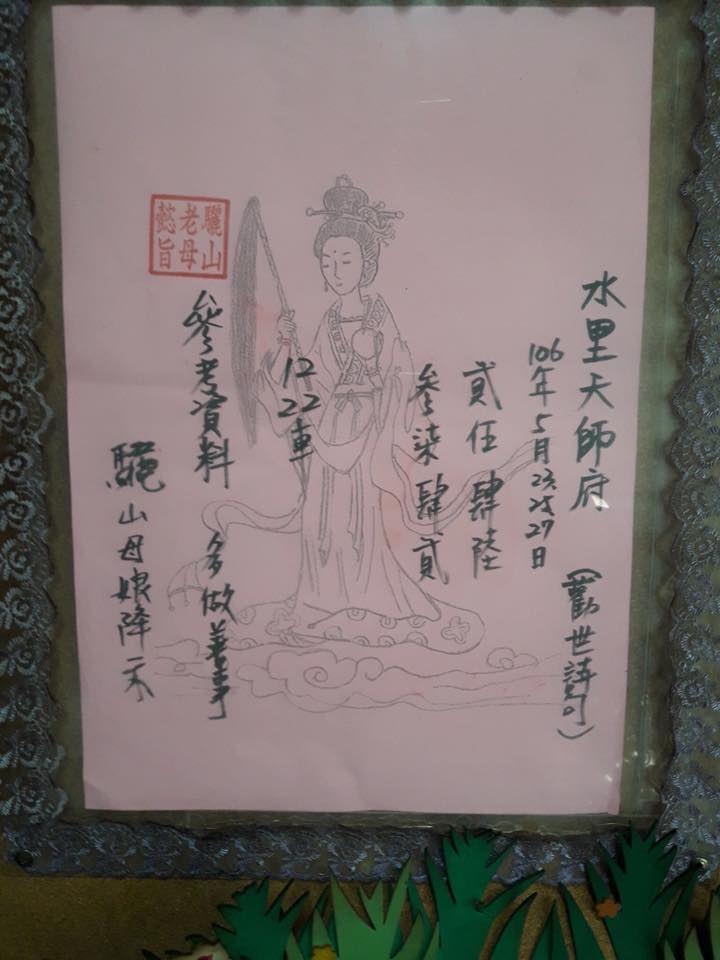 水里天師府
106年5月23.25.27日
(勸世詩句)
貳伍肆陸
參柒肆貳
12 22車
參考資料 多做善事
驪山老母懿旨
驪山母娘降示